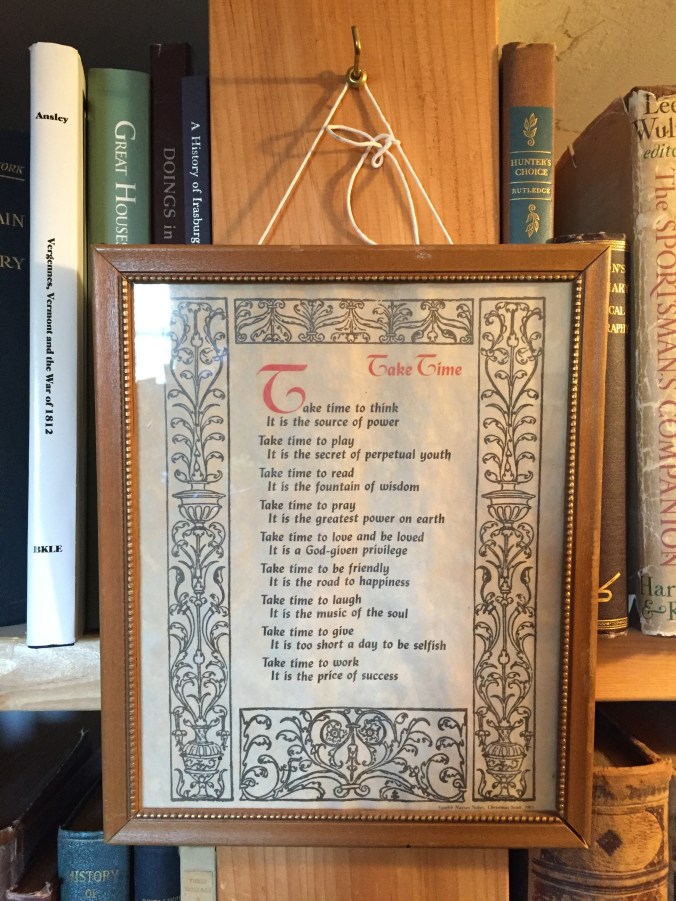 Ansley
Vergennes, Vermont and the War of 1812
BKLE
GREAT HOUSES
DOINGS in
A History of Irasburg
HUNTER'S
CHOICE
RUTLEDGE
Lee
editor
The SPORTSMAN'S COMPANION
Take Time
Take time to think
It is the source of power
Take time to play
It is the secret of perpetual youth
Take time to read
It is the fountain of wisdom
Take time to pray
It is the greatest power on earth
Take time to love and be loved
It is a God-given privilege
Take time to be friendly
It is the road to happiness
Take time to laugh
It is the music of the soul
Take time to give
It is too short a day to be selfish
Take time to work
It is the price of success
HISTORY
OF